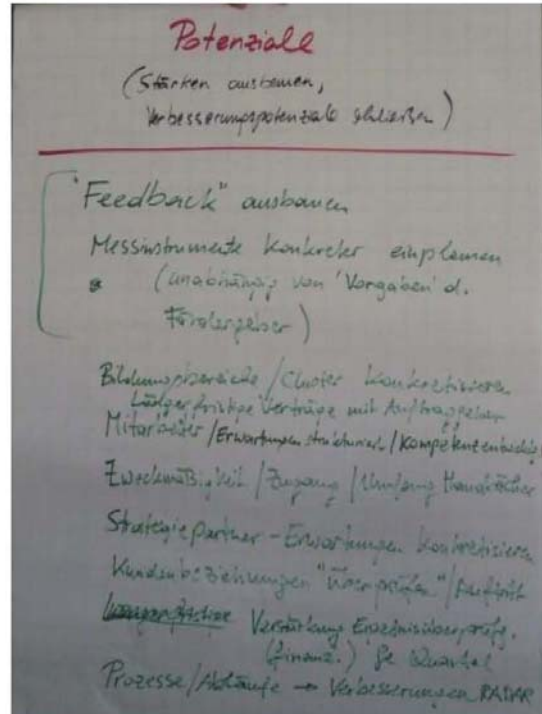 Potenziale
(Stärken ausbauen,
Verbesserungspotenziale schließen)
"Feedback" ausbauen
Messinstrumente konkreter einplanen
(unabhängig von 'Vorgaben' d.
Fördergeber)
Bildungsbereiche / Cluster konkretisieren
Längerfristige Verträge mit Auftraggebern
Mitarbeiter / Erwartungen strukturiert / Kompetenzentwicklg
Zweckmäßigkeit / Zugang / Umfang Handbücher
Strategiepartner - Erwartungen konkretisieren
Kundenbeziehungen "überprüfen" / Auftritt
Verstärkung Ergebnisüberprüfg.
(finanz.) Quartal
Prozesse / Abläufe → Verbesserungen RADAR